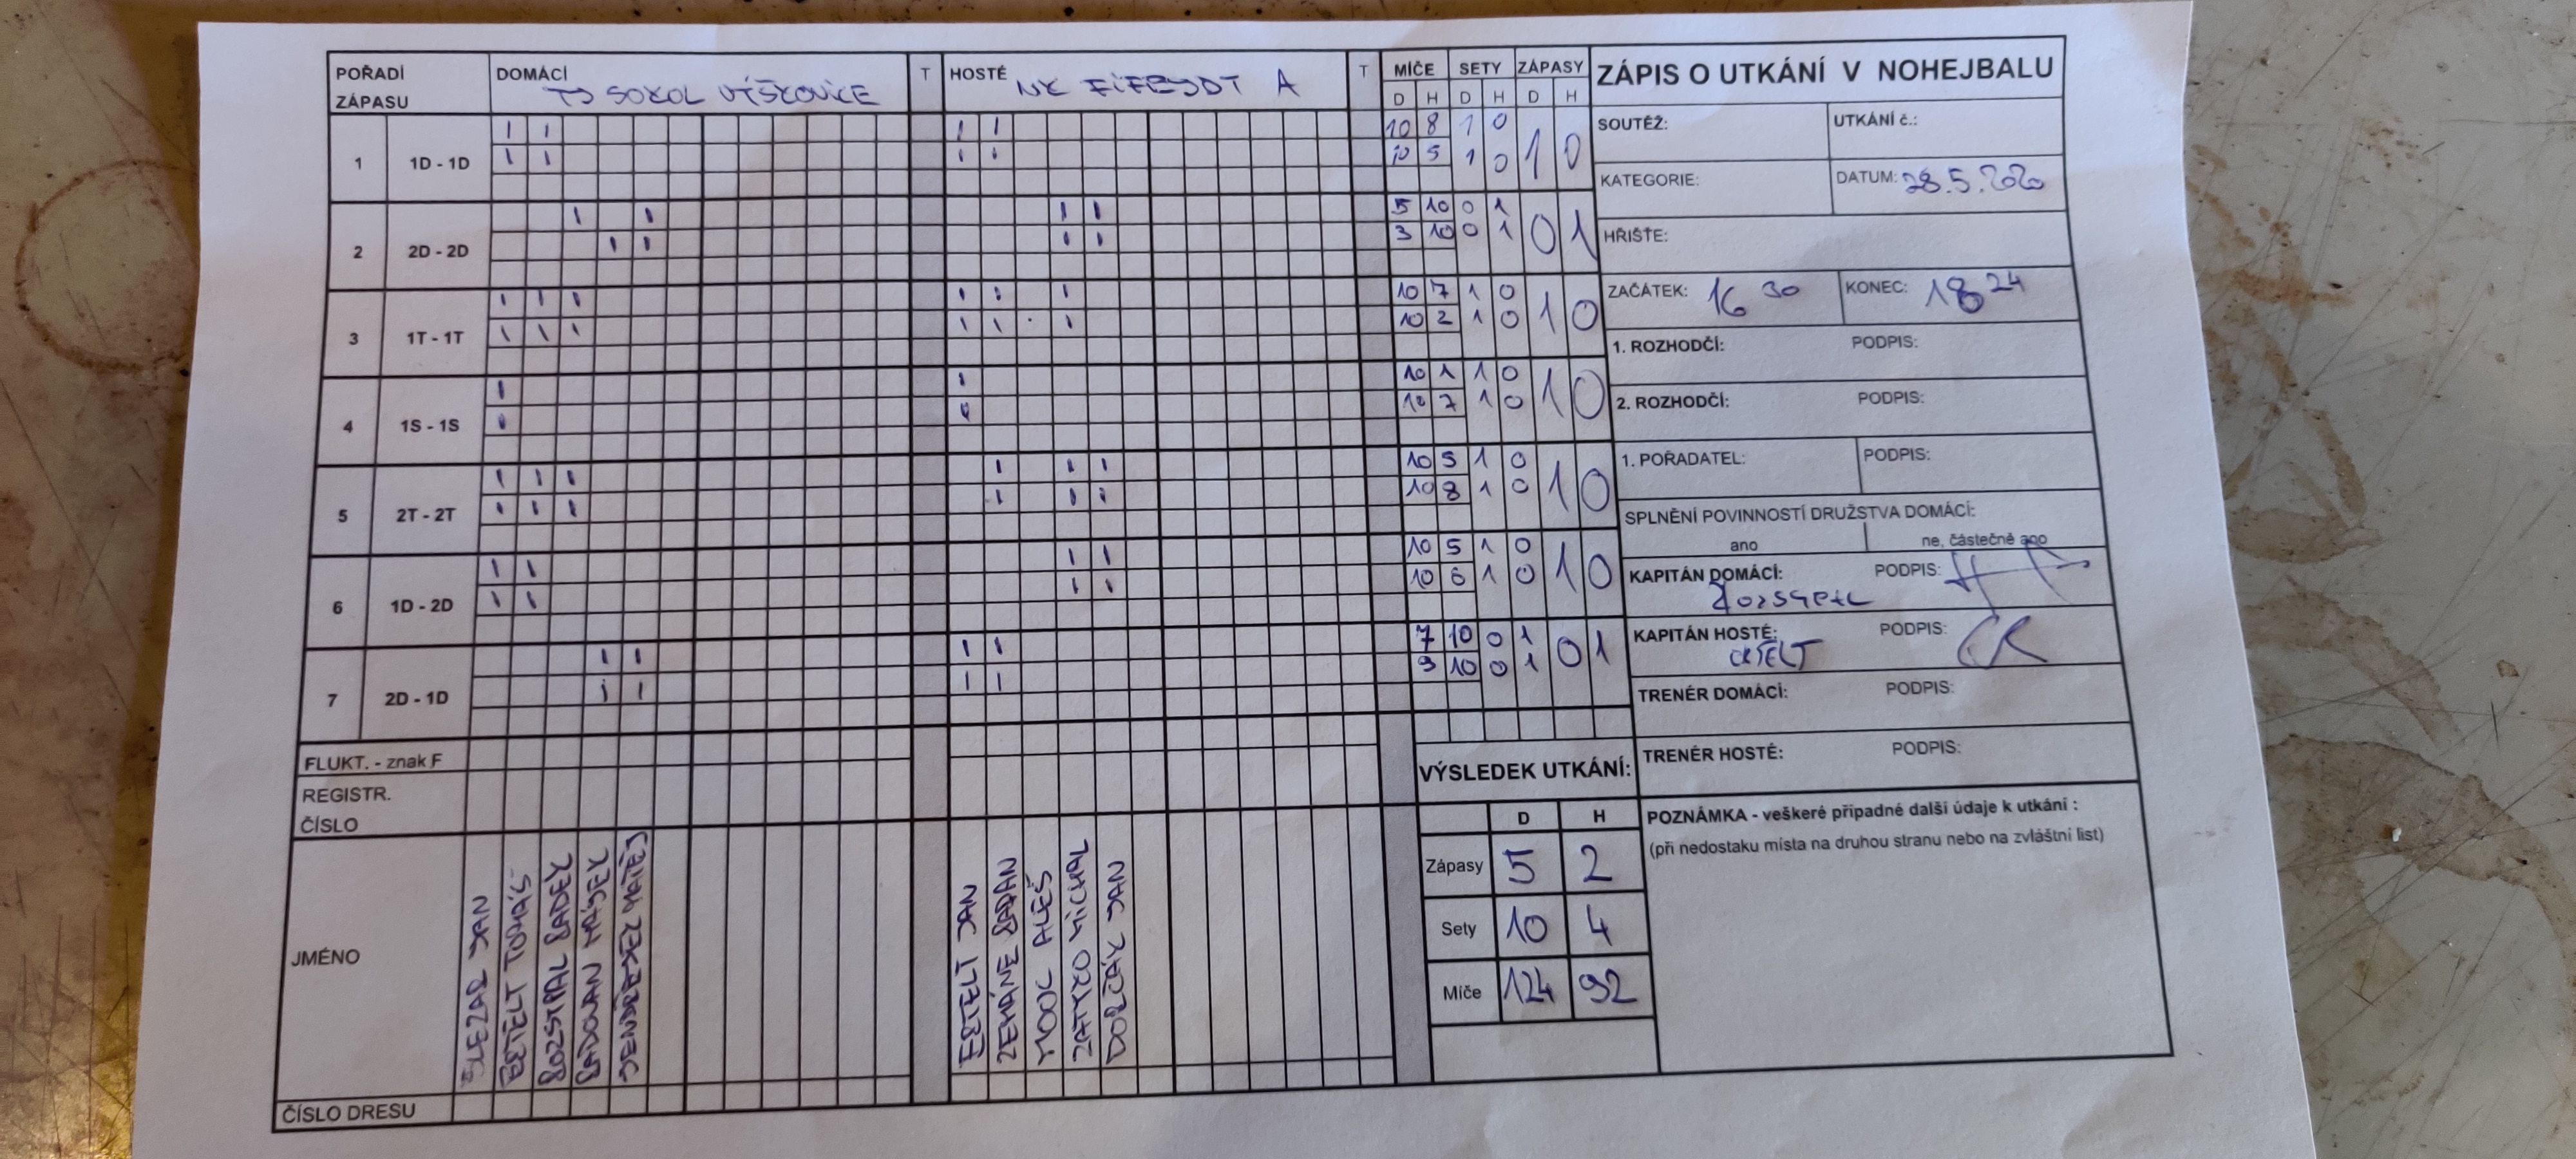 POŘADÍ ZÁPASU
DOMÁCÍ TJ SOKOL VÍŠKOVICE
T
HOSTÉ NK A
T
MÍČE SETY ZÁPASY
D H D H D H
1 1D - 1D
10 8 1 0
10 5 1 0
1 0
2 2D - 2D
5 10 0 1
3 10 0 1
0 1
3 1T - 1T
10 7 1 0
10 2 1 0
1 0
4 1S - 1S
10 1 1 0
10 7 1 0
1 0
5 2T - 2T
10 5 1 0
10 8 1 0
1 0
6 1D - 2D
10 5 1 0
10 6 1 0
1 0
7 2D - 1D
7 10 0 1
9 10 0 1
0 1
FLUKT. - znak F
REGISTR. ČÍSLO
JMÉNO
SLEZAR JAN
TOMÁŠ
ROZSYPAL RADEK
RADOVAN
MATĚJ
JAN
RADAN
MOOC ALEŠ
ZATYKO MICHAL
JAN
ČÍSLO DRESU
ZÁPIS O UTKÁNÍ V NOHEJBALU
SOUTĚŽ:
UTKÁNÍ č.:
KATEGORIE:
DATUM: 28.5.2020
HŘIŠTĚ:
ZAČÁTEK: 16 30
KONEC: 18 24
1. ROZHODČÍ: PODPIS:
2. ROZHODČÍ: PODPIS:
1. POŘADATEL: PODPIS:
SPLNĚNÍ POVINNOSTÍ DRUŽSTVA DOMÁCÍ:
ano ne, částečně ano
KAPITÁN DOMÁCÍ: PODPIS:
KAPITÁN HOSTÉ: PODPIS:
TRENÉR DOMÁCÍ: PODPIS:
TRENÉR HOSTÉ: PODPIS:
VÝSLEDEK UTKÁNÍ:
D H
Zápasy 5 2
Sety 10 4
Míče 124 92
POZNÁMKA - veškeré případné další údaje k utkání :
(při nedostaku místa na druhou stranu nebo na zvláštní list)